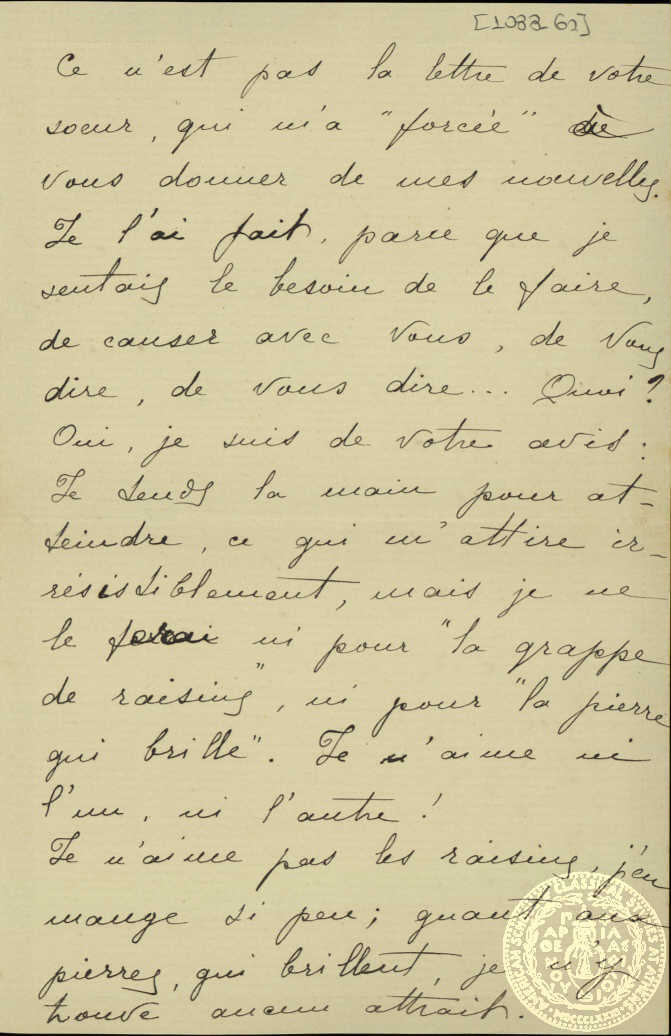 [1088-60]
Ce n'est pas la lettre de votre
soeur, qui m'a "forcée" de
vous donner de mes nouvelles.
Je l'ai fait, parce que je
sentais le besoin de le faire,
de causer avec vous, de vous
dire, de vous dire... Quoi?
Oui, je suis de votre avis:
Je tends la main pour at-
teindre, ce qui m'attire ir-
résistiblement, mais je ne
le ferai ni pour "la grappe
de raisins", ni pour "la pierre
qui brille". Je n'aime ni
l'un, ni l'autre!
Je n'aime pas les raisins, j'en
mange si peu; quant aux
pierres, qui brillent, je n'y
trouve aucun attrait.
AMERICAN SCHOOL OF CLASSICAL STUDIES AT ATHENS
ΠΑΡΙΑ
MDCCCLXXXI